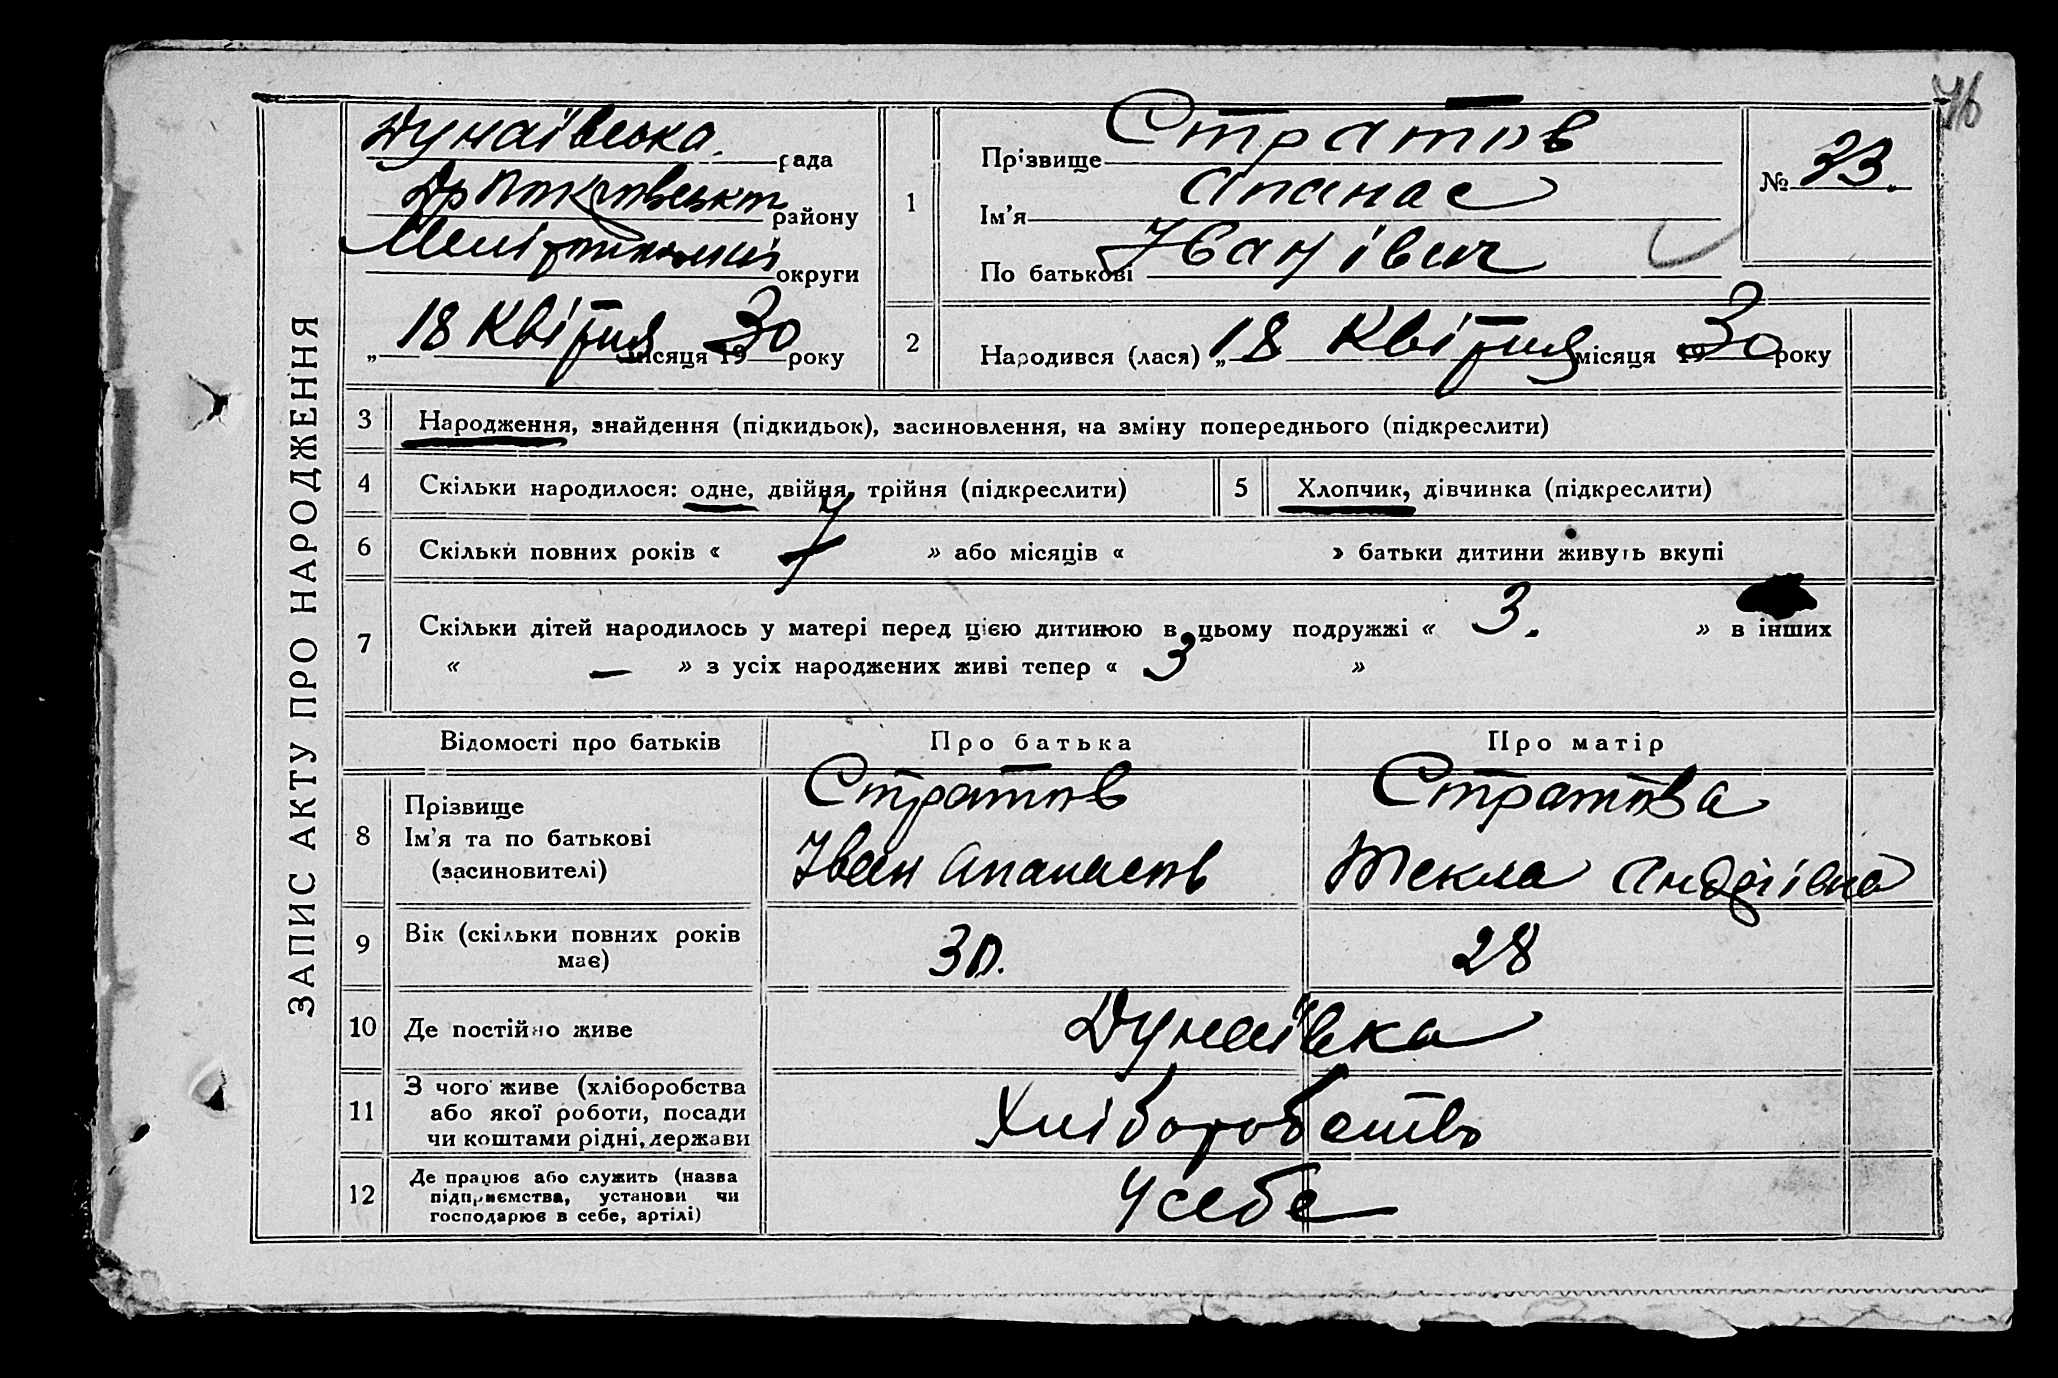 46
ЗАПИС АКТУ ПРО НАРОДЖЕННЯ
Дунаївська рада
району
округи
„ 18 Квітня місяця 1930 року
1 Прізвище Стратов
Ім'я Апанас
По батькові Іванівич
№ 33.
2 Народився (лася) „ 18 Квітня місяця 1930 року
3 Народження, знайдення (підкидьок), засиновлення, на зміну попереднього (підкреслити)
4 Скільки народилося: одне, двійня, трійня (підкреслити)
5 Хлопчик, дівчинка (підкреслити)
6 Скільки повних років « 7 » або місяців « » батьки дитини живуть вкупі
7 Скільки дітей народилось у матері перед цією дитиною в цьому подружжі « 3. » в інших
« — » з усіх народжених живі тепер « 3 »
Відомості про батьків Про батька Про матір
8 Прізвище
Ім'я та по батькові
(засиновителі)
Стратов
Іван Апанасов
Стратова
Текла Андріівна
9 Вік (скільки повних років
має)
30.
28
10 Де постійно живе
Дунаївка
11 З чого живе (хліборобства
або якої роботи, посади
чи коштами рідні, держави
Хліборобство
12 Де працює або служить (назва
підприємства, установи чи
господарює в себе, артілі)
У себе